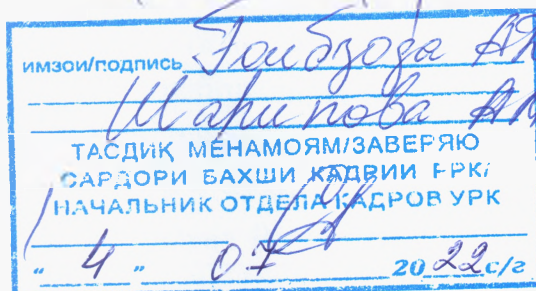 имзои/подпись Гоибзода А
Шарипова А
ТАСДИҚ МЕНАМОЯМ/ЗАВЕРЯЮ
САРДОРИ БАХШИ КАДРИИ РРК/
НАЧАЛЬНИК ОТДЕЛА КАДРОВ УРК
" 4 " 07 2022 с/г